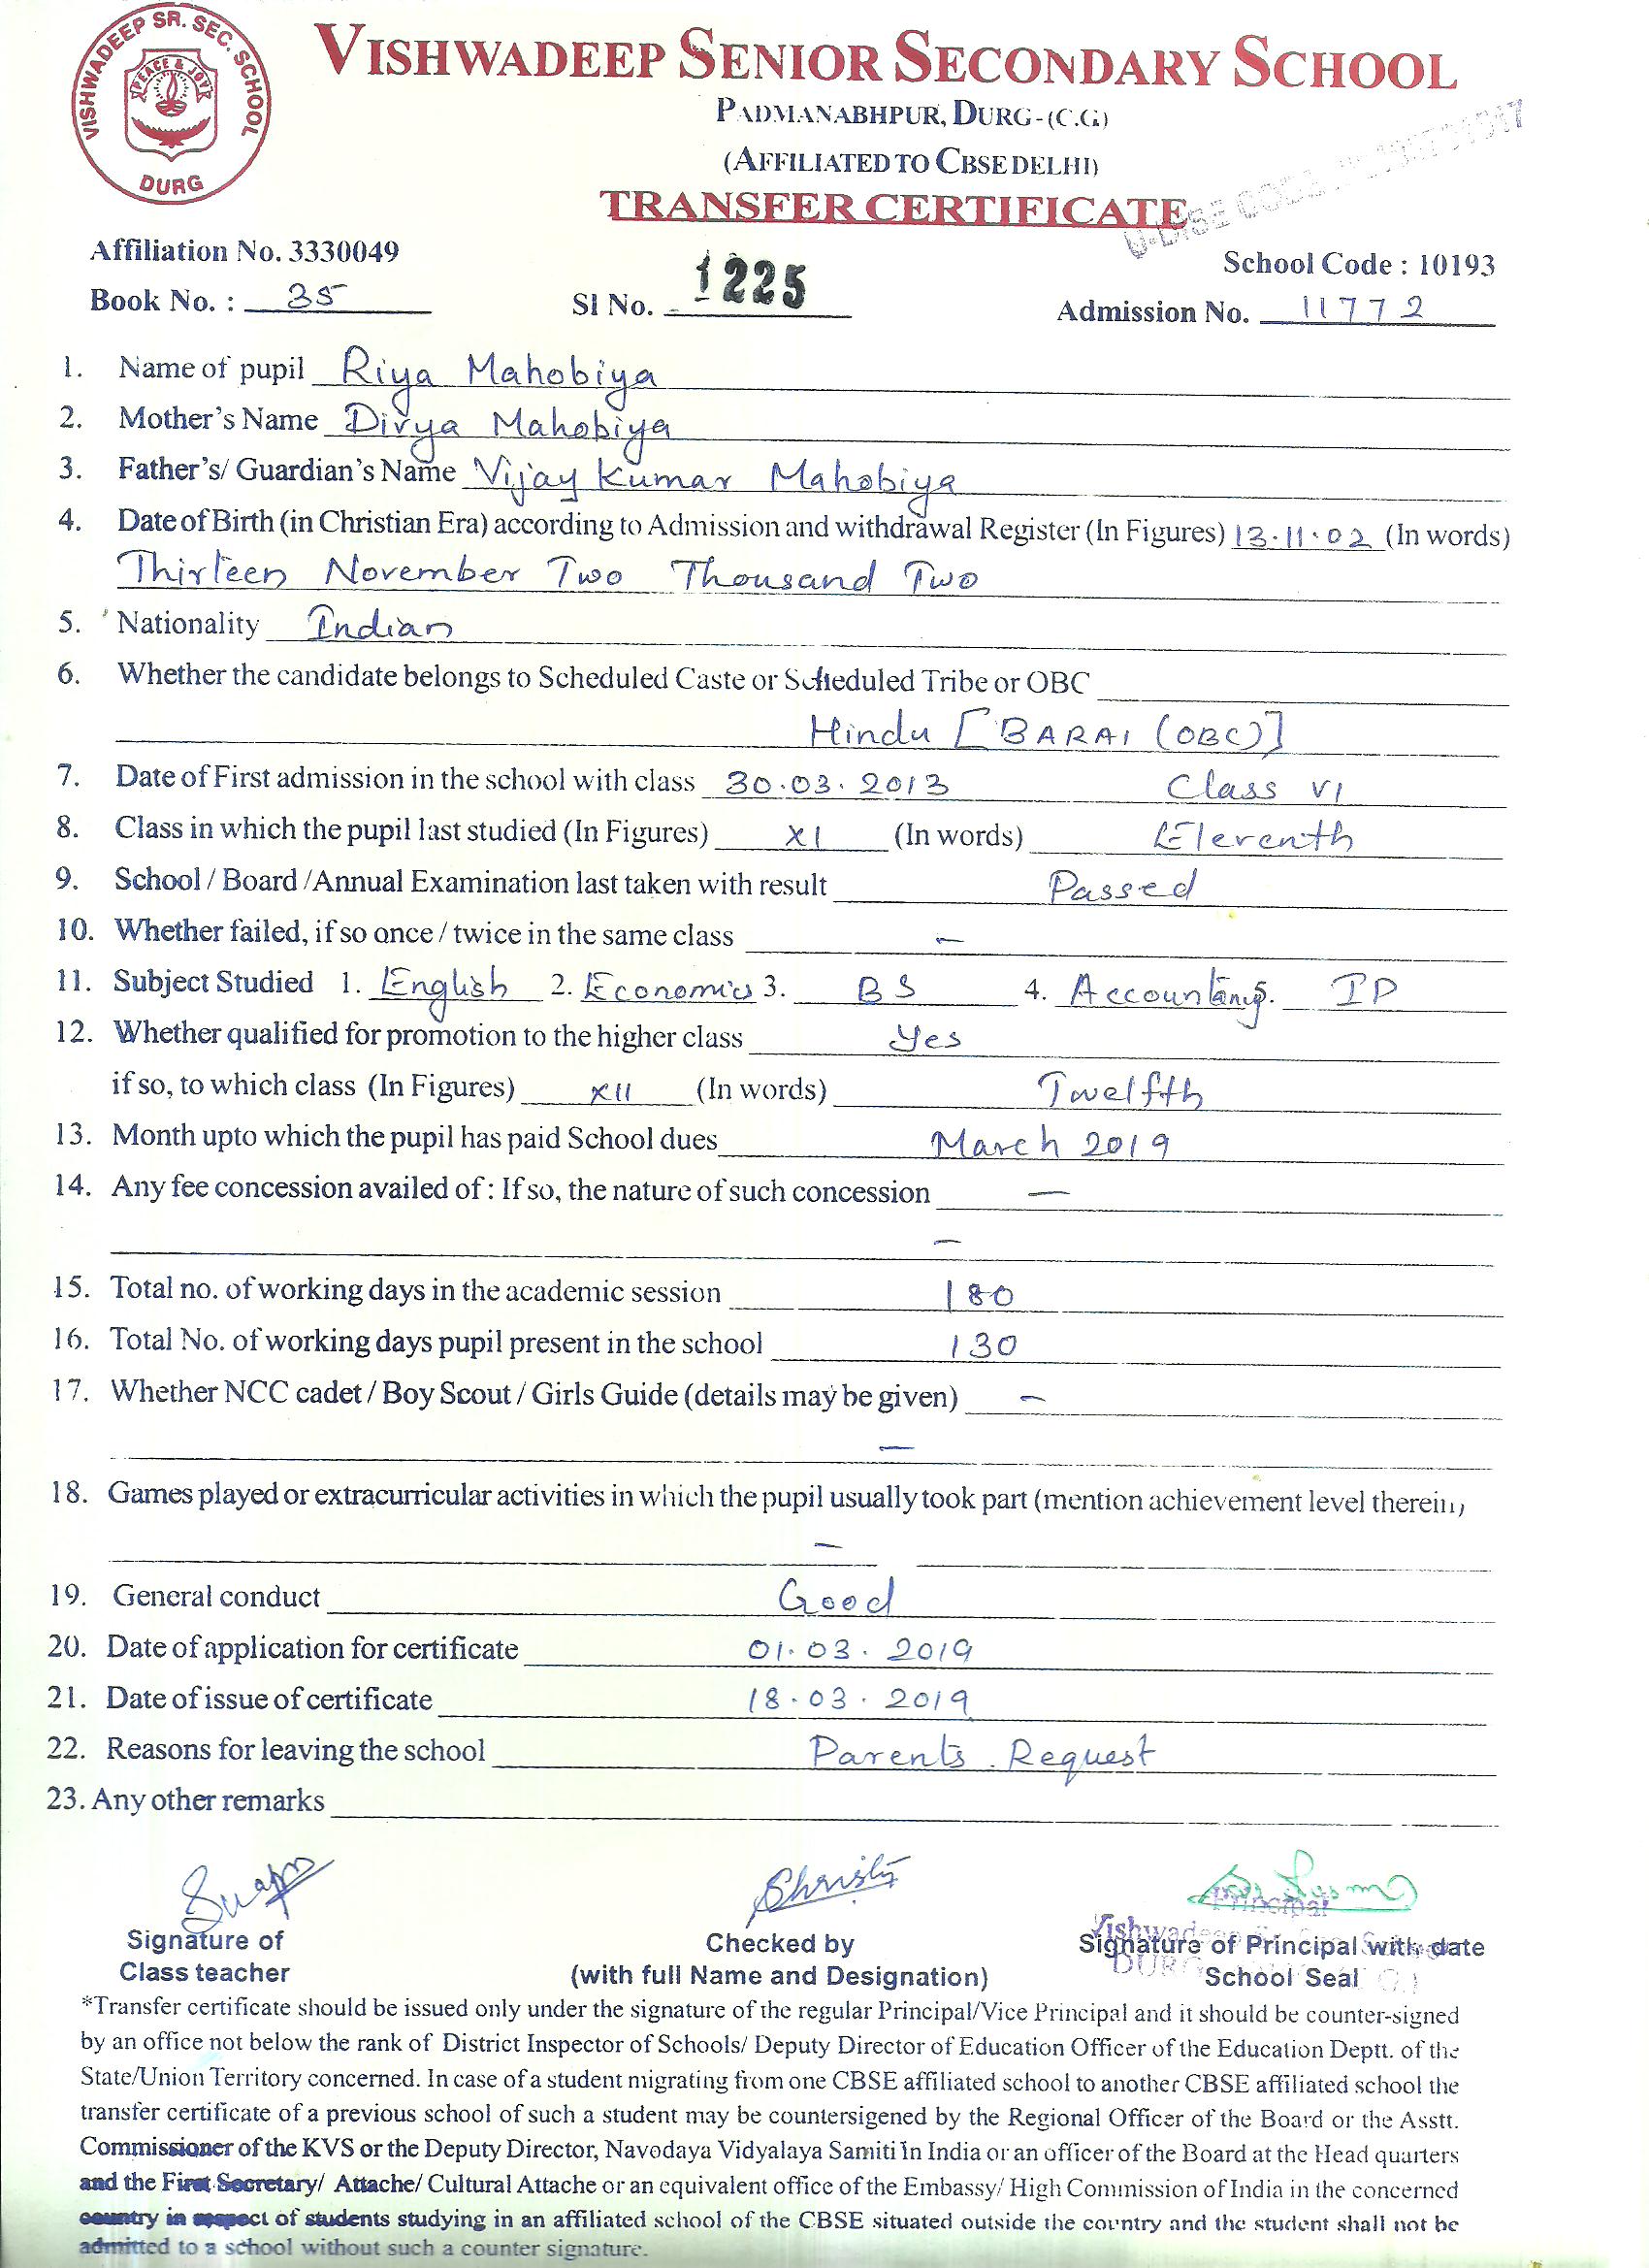 VISHWADEEP SR. SEC. SCHOOL
PEACE & JOY
DURG
VISHWADEEP SENIOR SECONDARY SCHOOL
PADMANABHPUR, DURG-(C.G)
(AFFILIATED TO CBSE DELHI)
TRANSFER CERTIFICATE
U-DISE CODE
Affiliation No. 3330049
School Code : 10193
Book No. : 35 Sl No. 1225 Admission No. 11772
1. Name of pupil Riya Mahobiya
2. Mother's Name Divya Mahobiya
3. Father's/ Guardian's Name Vijay Kumar Mahobiya
4. Date of Birth (in Christian Era) according to Admission and withdrawal Register (In Figures) 13.11.02 (In words)
Thirteen November Two Thousand Two
5. Nationality Indian
6. Whether the candidate belongs to Scheduled Caste or Scheduled Tribe or OBC
Hindu [BARAI (OBC)]
7. Date of First admission in the school with class 30.03.2013 Class VI
8. Class in which the pupil last studied (In Figures) XI (In words) Eleventh
9. School / Board /Annual Examination last taken with result Passed
10. Whether failed, if so once / twice in the same class –
11. Subject Studied 1. English 2. Economics 3. BS 4. Accountancy 5. IP
12. Whether qualified for promotion to the higher class Yes
if so, to which class (In Figures) XII (In words) Twelfth
13. Month upto which the pupil has paid School dues March 2019
14. Any fee concession availed of : If so, the nature of such concession –
–
15. Total no. of working days in the academic session 180
16. Total No. of working days pupil present in the school 130
17. Whether NCC cadet / Boy Scout / Girls Guide (details may be given) –
–
18. Games played or extracurricular activities in which the pupil usually took part (mention achievement level therein)
–
19. General conduct Good
20. Date of application for certificate 01.03.2019
21. Date of issue of certificate 18.03.2019
22. Reasons for leaving the school Parents Request
23. Any other remarks
Christy
Principal
Vishwadeep
DURG
Signature of Checked by Signature of Principal with date
Class teacher (with full Name and Designation) School Seal
*Transfer certificate should be issued only under the signature of the regular Principal/Vice Principal and it should be counter-signed
by an office not below the rank of District Inspector of Schools/ Deputy Director of Education Officer of the Education Deptt. of the
State/Union Territory concerned. In case of a student migrating from one CBSE affiliated school to another CBSE affiliated school the
transfer certificate of a previous school of such a student may be countersigened by the Regional Officer of the Board or the Asstt.
Commissioner of the KVS or the Deputy Director, Navodaya Vidyalaya Samiti in India or an officer of the Board at the Head quarters
and the First Secretary/ Attache/ Cultural Attache or an equivalent office of the Embassy/ High Commission of India in the concerned
country in respect of students studying in an affiliated school of the CBSE situated outside the country and the student shall not be
admitted to a school without such a counter signature.